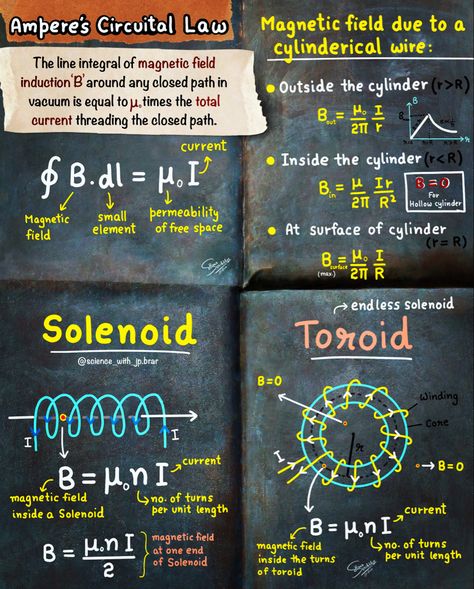 Ampere's Circuital Law
The line integral of magnetic field
induction 'B' around any closed path in
vacuum is equal to μ₀ times the total
current threading the closed path.
current
∮ B.dl = μ₀ I
Magnetic
field
small
element
permeability
of free space
Magnetic field due to a
cylinderical wire:
Outside the cylinder (r>R)
B out = μ₀/2π I/r
Inside the cylinder (r<R)
B in = μ/2π Ir/R²
B = 0
For
Hollow cylinder
At surface of cylinder
(r = R)
B surface (max.) = μ₀/2π I/R
Solenoid
@science_with_jp.brar
I
I
B = μ₀ n I
current
magnetic field
inside a Solenoid
no. of turns
per unit length
B = μ₀ n I/2
magnetic field
at one end
of Solenoid
endless solenoid
Toroid
B=0
Winding
Core
r
I
I
B=0
B = μ₀ n I
current
magnetic field
inside the turns
of toroid
no. of turns
per unit length